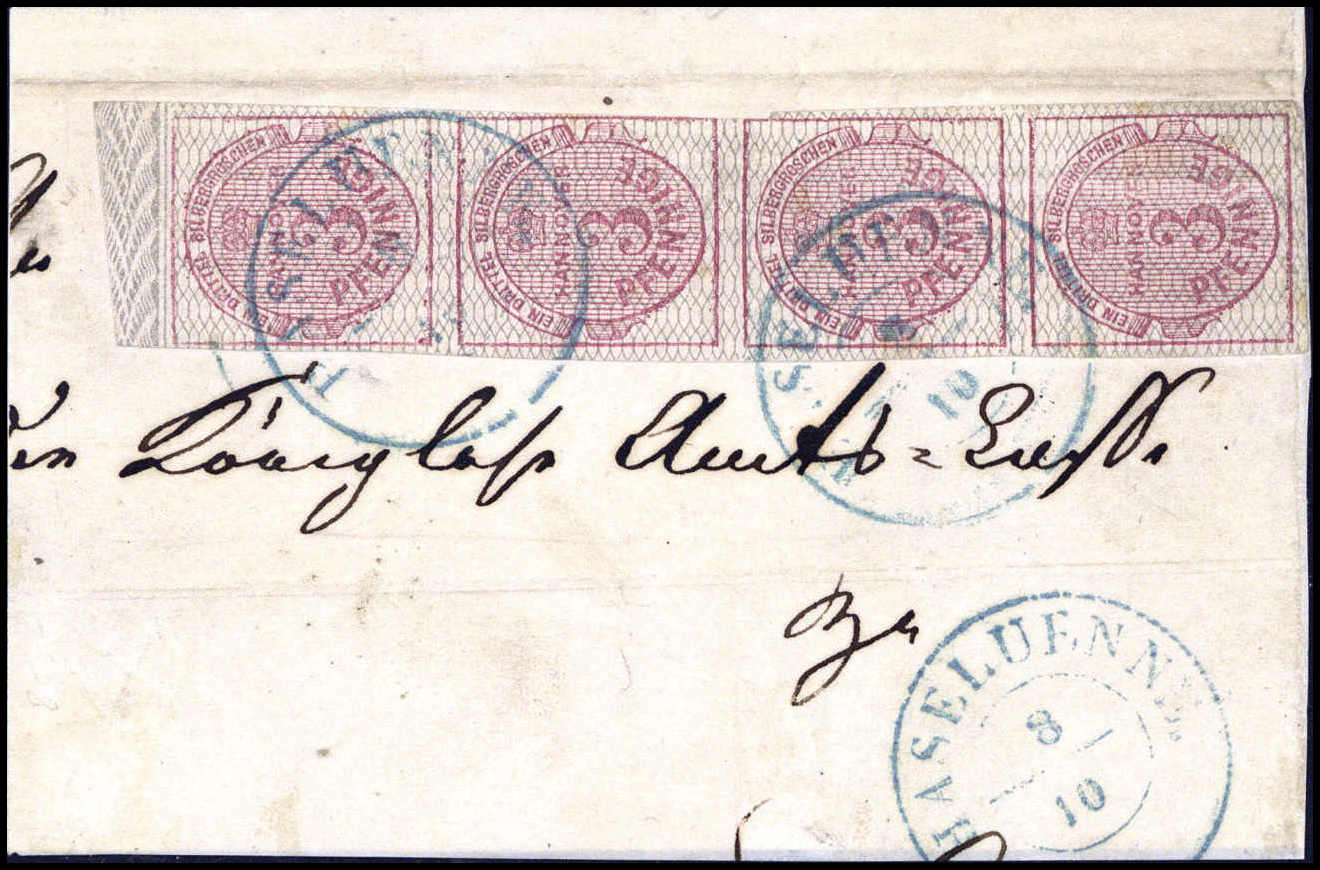 EIN DRITTEL SILBERGROSCHEN HANNOVER 3 PFENNIGE
EIN DRITTEL SILBERGROSCHEN HANNOVER 3 PFENNIGE
EIN DRITTEL SILBERGROSCHEN HANNOVER 3 PFENNIGE
EIN DRITTEL SILBERGROSCHEN HANNOVER 3 PFENNIGE
HASELUENNE
HASELUENNE 8 10
Amts=
HASELUENNE
8
10